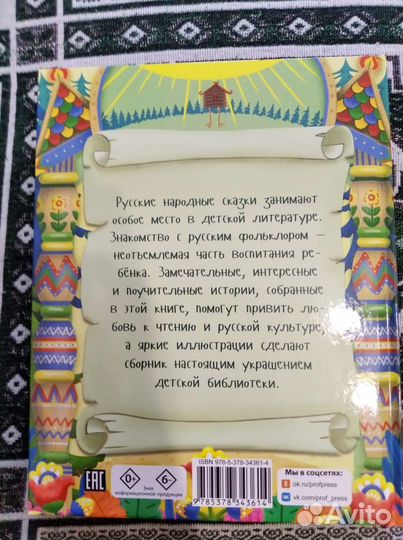 Русские народные сказки занимают
особое место в детской литературе.
Знакомство с русским фольклором –
неотъемлемая часть воспитания ре-
бёнка. Замечательные, интересные
и поучительные истории, собранные
в этой книге, помогут привить лю-
бовь к чтению и русской культуре,
а яркие иллюстрации сделают
сборник настоящим украшением
детской библиотеки.
ISBN 978-5-378-34361-4
EAC
0+
6+
Знак
информационной продукции
9 785378 343614
Мы в соцсетях:
ok.ru/profpress
vk.com/prof_press
Avito